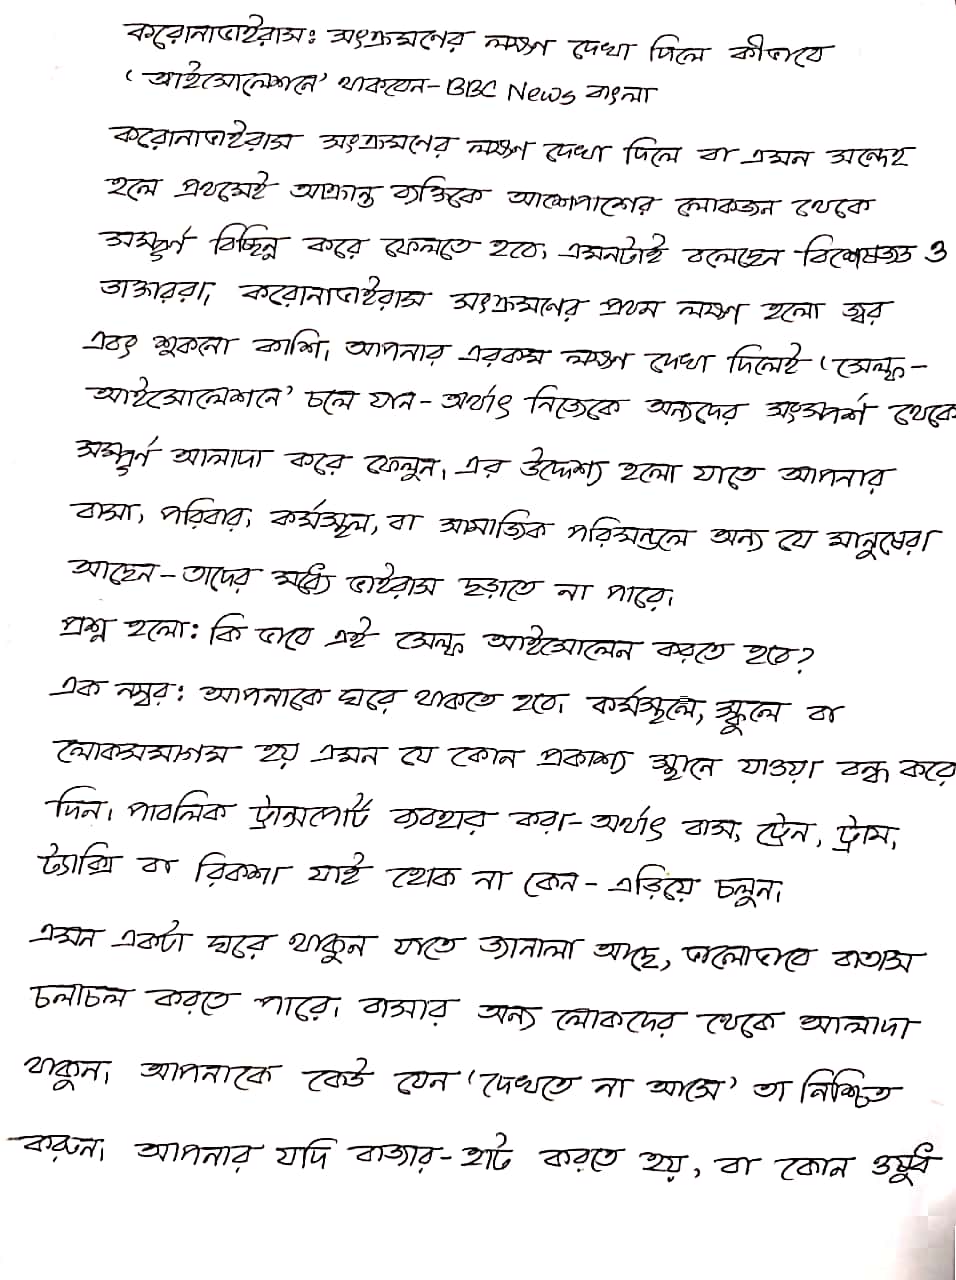 করোনাভাইরাস: সংক্রমণের লক্ষণ দেখা দিলে কীভাবে
'আইসোলেশনে' থাকবেন - BBC News বাংলা
করোনাভাইরাস সংক্রমণের লক্ষণ দেখা দিলে বা এমন সন্দেহ
হলে প্রথমেই আক্রান্ত ব্যক্তিকে আশেপাশের লোকজন থেকে
সম্পূর্ণ বিচ্ছিন্ন করে ফেলতে হবে, এমনটাই বলেছেন বিশেষজ্ঞ ও
ডাক্তাররা। করোনাভাইরাস সংক্রমণের প্রথম লক্ষণ হলো জ্বর
এবং শুকনো কাশি। আপনার এরকম লক্ষণ দেখা দিলেই 'সেল্ফ-
আইসোলেশনে' চলে যান - অর্থাৎ নিজেকে অন্যদের সংস্পর্শ থেকে
সম্পূর্ণ আলাদা করে ফেলুন। এর উদ্দেশ্য হলো যাতে আপনার
বাসা, পরিবার, কর্মস্থল, বা সামাজিক পরিমন্ডলে অন্য যে মানুষেরা
আছেন - তাদের মধ্যে ভাইরাস ছড়াতে না পারে।
প্রশ্ন হলো: কি ভাবে এই সেল্ফ আইসোলেন করতে হবে?
এক নম্বর: আপনাকে ঘরে থাকতে হবে। কর্মস্থলে, স্কুলে বা
লোকসমাগম হয় এমন যে কোন প্রকাশ্য স্থানে যাওয়া বন্ধ করে
দিন। পাবলিক ট্রান্সপোর্ট ব্যবহার করা - অর্থাৎ বাস, ট্রেন, ট্রাম,
ট্যাক্সি বা রিকশা যাই হোক না কেন - এড়িয়ে চলুন।
এমন একটা ঘরে থাকুন যাতে জানালা আছে, ভালোভাবে বাতাস
চলাচল করতে পারে। বাসার অন্য লোকদের থেকে আলাদা
থাকুন। আপনাকে কেউ যেন 'দেখতে না আসে' তা নিশ্চিত
করুন। আপনার যদি বাজার-হাট করতে হয়, বা কোন ওষুধ